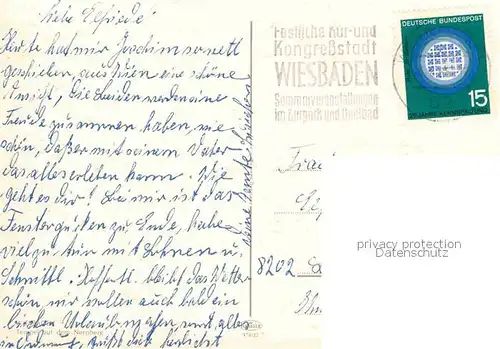 Liebe Elfriede!
Heute hat mir Joachim so nett
geschrieben, aus Wien eine schöne
Ansicht, die beiden werden eine
Freude zusammen haben, wie
schön, daß er mit seinem Vater
das alles erleben kann. Wie
geht es dir? Bei mir ist das
Fenstergucken zu Ende, habe
viel zu tun mit Bohnen u.
Schnittl. Hoffentl. bleibt das Wetter
schön, wir wollen auch bald ein
bischen Urlaub machen, sonst alles
in Ordnung, Grüßt dich herzlich
deine Tante
Tempel auf dem Neroberg
Festliche Kur-und
Kongreßstadt
WIESBADEN
Sommerveranstaltungen
im Kurpark und Umland
DEUTSCHE BUNDESPOST
15
JAHRE KERNSPALTUNG
8202
privacy protection
Datenschutz